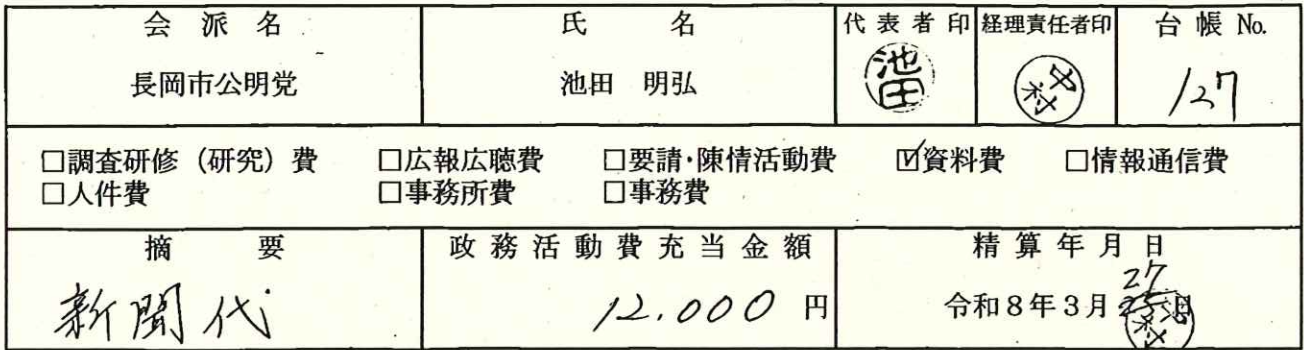 会派名 氏名 代表者印 経理責任者印 台帳 No.
長岡市公明党 池田 明弘 池田 中村 127
□調査研修（研究）費 □広報広聴費 □要請・陳情活動費 ☑資料費 □情報通信費
□人件費 □事務所費 □事務費
摘要 政務活動費充当金額 精算年月日
27
新聞代 12,000 円 令和8年3月 日